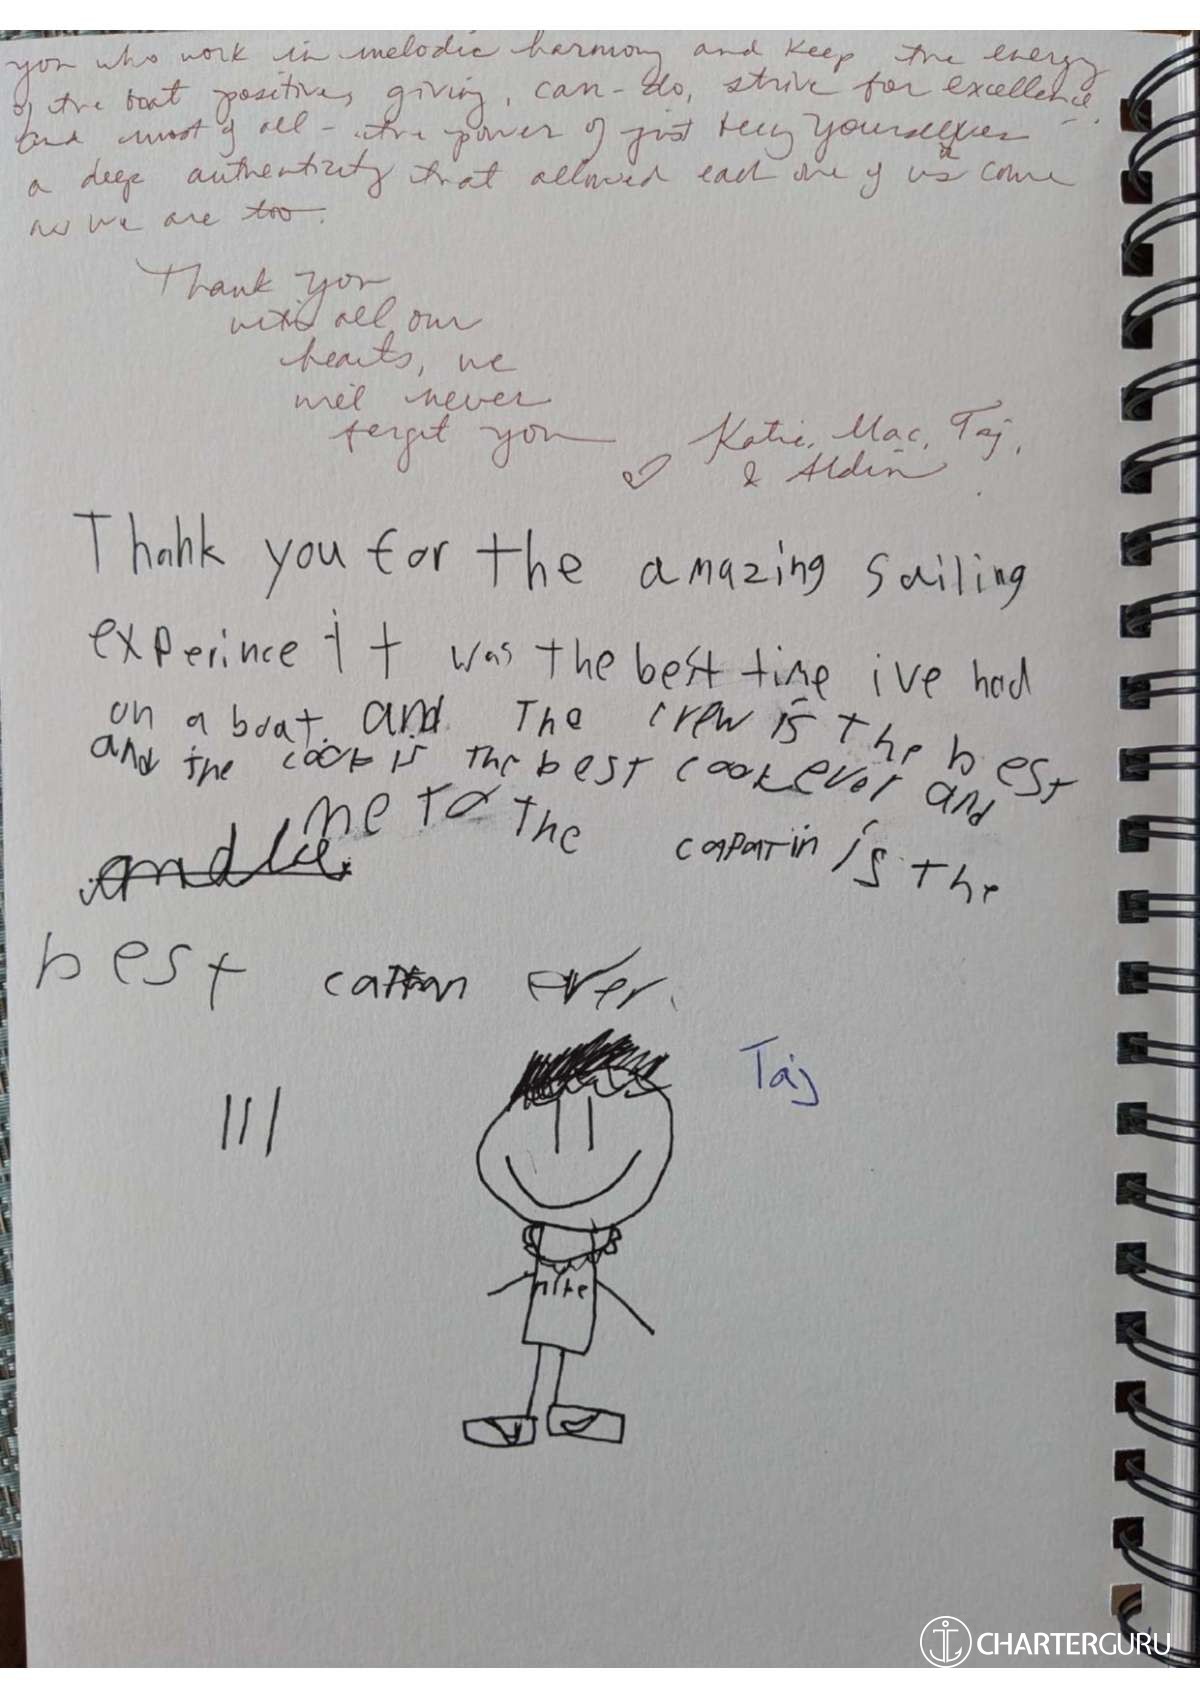 you who work in melodic harmony and keep the energy
of the boat positive, giving, can-do, strive for excellence,
and most of all - the power of just being yourselves
a deep authenticity that allowed each one of us to come
as we are too.
Thank you
with all our
hearts, we
will never
forget you
Katie, Mac, Taj,
& Aldin
Thank you for the amazing sailing
experince it was the best time ive had
on a boat. and The crew is the best
and the cook is the best cook ever and
me to the capatin is the
best ever.
Taj
nike
CHARTERGURU